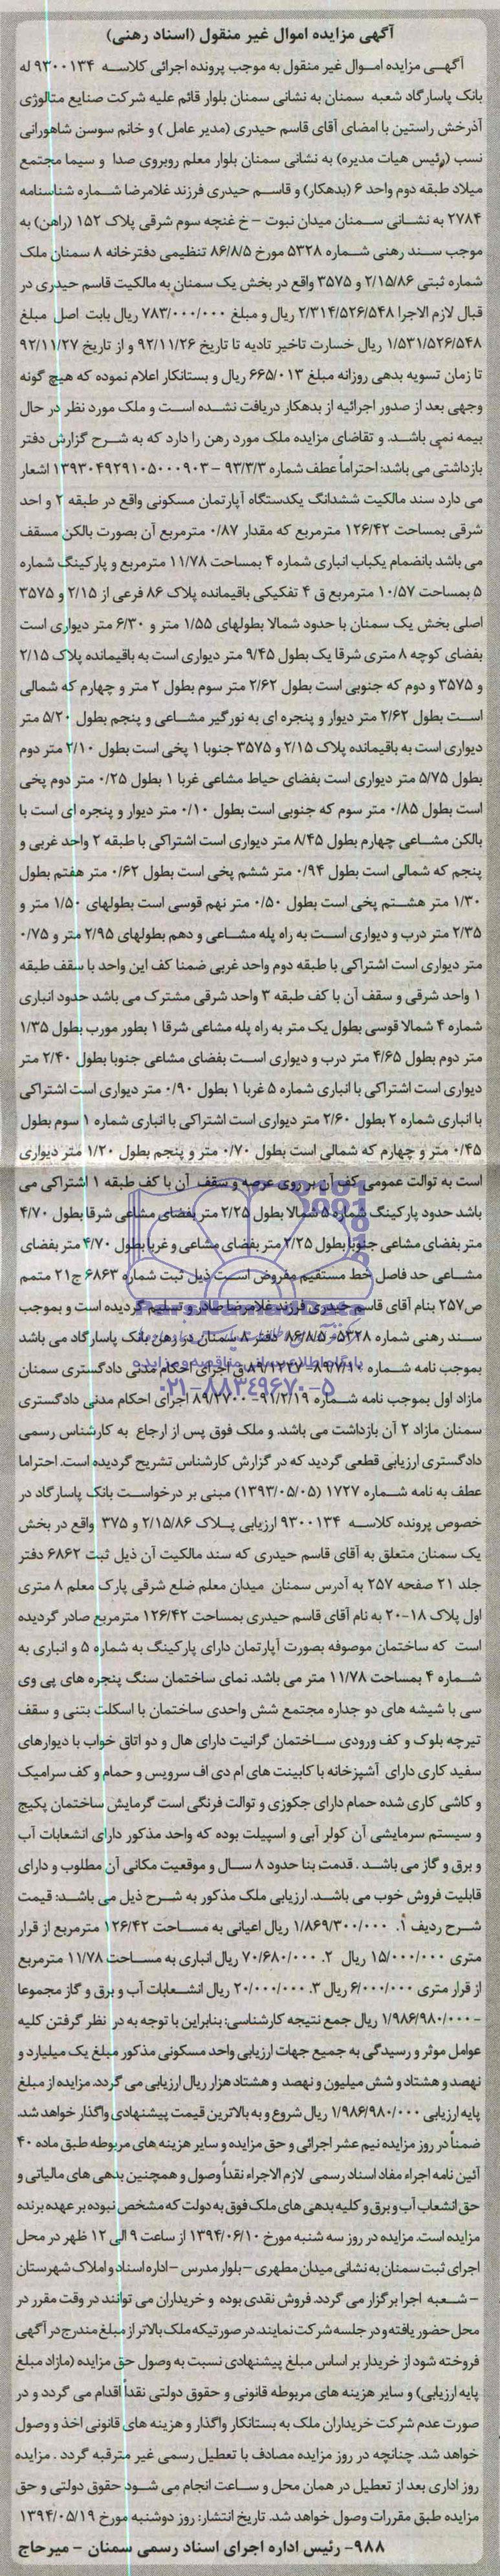 آگهی مزایده اموال غیر منقول (اسناد رهنی)
آگهـی مزایده امـوال غیر منقول به موجب پرونده اجرائی کلاسـه ۹۳۰۰۱۳۴ له
بانک پاسارگاد شعبه سمنان به نشانی سمنان بلوار قائم علیه شرکت صنایع متالوژی
آذرخش راستین با امضای آقای قاسم حیدری (مدیر عامل) و خانم سوسن شاهورانی
نسب (رئیس هیات مدیره) به نشانی سمنان بلوار معلم روبروی صدا و سیما مجتمع
میلاد طبقه دوم واحد ۶ (بدهکار) و قاسـم حیدری فرزند غلامرضا شـماره شناسنامه
۲۷۸۴ به نشـانی سـمنان میدان نبوت - خ غنچه سوم شرقی پلاک ۱۵۲ (راهن) به
موجب سـند رهنی شـماره ۵۳۲۸ مورخ ۸۶/۸/۵ تنظیمی دفترخانه ۸ سمنان ملک
شماره ثبتی ۲/۱۵/۸۶ و ۳۵۷۵ واقع در بخش یک سمنان به مالکیت قاسم حیدری در
قبال لازم الاجرا ۲/۳۱۴/۵۲۶/۵۴۸ ریال و مبلغ ۷۸۳/۰۰۰/۰۰۰ ریال بابت اصل مبلغ
۱/۵۳۱/۵۲۶/۵۴۸ ریال خسارت تاخیر تادیه تا تاریخ ۹۲/۱۱/۲۶ و از تاریخ ۹۲/۱۱/۲۷
تا زمان تسویه بدهی روزانه مبلغ ۶۶۵/۰۱۳ ریال و بستانکار اعلام نموده که هیچ گونه
وجهی بعد از صدور اجرائیه از بدهکار دریافت نشـده اسـت و ملک مورد نظر در حال
بیمه نمی باشـد. و تقاضای مزایده ملک مورد رهن را دارد که به شـرح گزارش دفتر
بازداشتی می باشد: احتراماً عطف شماره ۹۳/۳/۳ - ۱۳۹۳۰۴۹۲۹۱۰۵۰۰۰۹۰۳ اشعار
می دارد سند مالکیت ششدانگ یکدستگاه آپارتمان مسکونی واقع در طبقه ۲ و احد
شرقی بمساحت ۱۲۶/۴۲ مترمربع که مقدار ۰/۸۷ مترمربع آن بصورت بالکن مسقف
می باشد بانضمام یکباب انباری شماره ۴ بمساحت ۱۱/۷۸ مترمربع و پارکینگ شماره
۵ بمساحت ۱۰/۵۷ مترمربع ق ۴ تفکیکی باقیمانده پلاک ۸۶ فرعی از ۲/۱۵ و ۳۵۷۵
اصلی بخش یک سمنان با حدود شمالا بطولهای ۱/۵۵ متر و ۶/۳۰ متر دیواری است
بفضای کوچه ۸ متری شرقا یک بطول ۹/۴۵ متر دیواری است به باقیمانده پلاک ۲/۱۵
و ۳۵۷۵ و دوم که جنوبی است بطول ۲/۶۲ متر سوم بطول ۲ متر و چهارم که شمالی
اسـت بطول ۲/۶۲ متر دیوار و پنجره ای به نورگیر مشـاعی و پنجم بطول ۵/۲۰ متر
دیواری است به باقیمانده پلاک ۲/۱۵ و ۳۵۷۵ جنوبا ۱ پخی است بطول ۲/۱۰ متر دوم
بطول ۵/۷۵ متر دیواری است بفضای حیاط مشاعی غربا ۱ بطول ۰/۲۵ متر دوم پخی
است بطول ۰/۸۵ متر سوم که جنوبی است بطول ۰/۱۰ متر دیوار و پنجره ای است با
بالکن مشـاعی چهارم بطول ۸/۴۵ متر دیواری است اشتراکی با طبقه ۲ واحد غربی و
پنجم که شمالی است بطول ۰/۹۴ متر ششم پخی است بطول ۰/۶۲ متر هفتم بطول
۱/۳۰ متر هشـتم پخی است بطول ۰/۵۰ متر نهم قوسی است بطولهای ۱/۵۰ متر و
۲/۳۵ متر درب و دیواری اسـت به راه پله مشـاعی و دهم بطولهای ۲/۹۵ متر و ۰/۷۵
متر دیواری است اشتراکی با طبقه دوم واحد غربی ضمنا کف این واحد با سقف طبقه
۱ واحد شرقی و سقف آن با کف طبقه ۳ واحد شرقی مشترک می باشد حدود انباری
شماره ۴ شمالا قوسی بطول یک متر به راه پله مشاعی شرقا ۱ بطور مورب بطول ۱/۳۵
متر دوم بطول ۴/۶۵ متر درب و دیواری اسـت بفضای مشاعی جنوبا بطول ۲/۴۰ متر
دیواری است اشتراکی با انباری شماره ۵ غربا ۱ بطول ۰/۹۰ متر دیواری است اشتراکی
با انباری شماره ۲ بطول ۲/۶۰ متر دیواری است اشتراکی با انباری شماره ۱ سوم بطول
۰/۴۵ متر و چهارم که شمالی است بطول ۰/۷۰ متر و پنجم بطول ۱/۲۰ متر دیواری
است به توالت عمومی کف آن بر روی عرصه و سقف آن با کف طبقه ۱ اشتراکی می
باشد حدود پارکینگ شماره ۵ شمالا بطول ۲/۲۵ متر بفضای مشاعی شرقا بطول ۴/۷۰
متر بفضای مشاعی جنوبا بطول ۲/۲۵ متر بفضای مشاعی و غربا بطول ۴/۷۰ متر بفضای
مشـاعی حد فاصل خط مستقیم مفروض اسـت ذیل ثبت شماره ۶۸۶۳ ج۲۱ متمم
ص۲۵۷ بنام آقای قاسم حیدری فرزند غلامرضا صادر و تسلیم گردیده است و بموجب
سـند رهنی شماره ۵۳۲۸-۸۶/۸/۵ دفتر ۸ سمنان در رهن بانک پاسارگاد می باشد
بموجب نامه شـماره ۸۹/۷/۱۰- ق اجرای احکام مدنی دادگستری سمنان
مازاد اول بموجب نامه شـماره ۹۱/۲/۱۹-۸۹/۲۷۰۰ اجرای احکام مدنی دادگستری
سمنان مازاد ۲ آن بازداشت می باشد. و ملک فوق پس از ارجاع به کارشناس رسمی
دادگستری ارزیابی قطعی گردید که در گزارش کارشناس تشریح گردیده است. احتراما
عطف به نامه شـماره ۱۷۲۷ (۱۳۹۳/۰۵/۰۵) مبنی بر درخواسـت بانک پاسارگاد در
خصوص پرونده کلاسـه ۹۳۰۰۱۳۴ ارزیابی پـلاک ۲/۱۵/۸۶ و ۳۷۵ واقع در بخش
یک سمنان متعلق به آقای قاسم حیدری که سند مالکیت آن ذیل ثبت ۶۸۶۲ دفتر
جلد ۲۱ صفحه ۲۵۷ به آدرس سمنان میدان معلم ضلع شرقی پارک معلم ۸ متری
اول پلاک ۱۸-۲۰ به نام آقای قاسم حیدری بمساحت ۱۲۶/۴۲ مترمربع صادر گردیده
است که ساختمان موصوفه بصورت آپارتمان دارای پارکینگ به شماره ۵ و انباری به
شـماره ۴ بمساحت ۱۱/۷۸ متر می باشد. نمای ساختمان سنگ پنجره های پی وی
سی با شیشه های دو جداره مجتمع شش واحدی ساختمان با اسکلت بتنی و سقف
تیرچه بلوک و کف ورودی سـاختمان گرانیت دارای هال و دو اتاق خواب با دیوارهای
سفید کاری دارای آشپزخانه با کابینت های ام دی اف سرویس و حمام و کف سرامیک
و کاشی کاری شده حمام دارای جکوزی و توالت فرنگی است گرمایش ساختمان پکیج
و سیستم سرمایشی آن کولر آبی و اسپیلت بوده که واحد مذکور دارای انشعابات آب
و برق و گاز می باشـد. قدمت بنا حدود ۸ سـال و موقعیت مکانی آن مطلوب و دارای
قابلیت فروش خوب می باشـد. ارزیابی ملک مذکور به شـرح ذیل می باشد: قیمت
شـرح ردیف ۱. ۱/۸۶۹/۳۰۰/۰۰۰ ریال اعیانی به مسـاحت ۱۲۶/۴۲ مترمربع از قرار
متری ۱۵/۰۰۰/۰۰۰ ریال ۲. ۷۰/۶۸۰/۰۰۰ ریال انباری به مسـاحت ۱۱/۷۸ مترمربع
از قرار متری ۶/۰۰۰/۰۰۰ ریال ۳. ۲۰/۰۰۰/۰۰۰ ریال انشـعابات آب و برق و گاز مجموعا
- ۱/۹۸۶/۹۸۰/۰۰۰ ریال جمع نتیجه کارشناسی: بنابراین با توجه به در نظر گرفتن کلیه
عوامل موثر و رسیدگی به جمیع جهات ارزیابی واحد مسکونی مذکور مبلغ یک میلیارد و
نهصد و هشتاد و شش میلیون و نهصد و هشتاد هزار ریال ارزیابی می گردد. مزایده از مبلغ
پایه ارزیابی ۱/۹۸۶/۹۸۰/۰۰۰ ریال شروع و به بالاترین قیمت پیشنهادی واگذار خواهد شد.
ضمناً در روز مزایده نیم عشر اجرائی و حق مزایده و سایر هزینه های مربوطه طبق ماده ۴۰
آئین نامه اجراء مفاد اسناد رسمی لازم الاجراء نقداً وصول و همچنین بدهی های مالیاتی و
حق انشعاب آب و برق و کلیه بدهی های ملک فوق به دولت که مشخص نبوده بر عهده برنده
مزایده است. مزایده در روز سه شنبه مورخ ۱۳۹۴/۰۶/۱۰ از ساعت ۹ الی ۱۲ ظهر در محل
اجرای ثبت سمنان به نشانی میدان مطهری - بلوار مدرس - اداره اسناد و املاک شهرستان
- شـعبه اجرا برگزار می گردد. فروش نقدی بوده و خریداران می توانند در وقت مقرر در
محل حضور یافته و در جلسه شرکت نمایند. در صورتیکه ملک بالاتر از مبلغ مندرج در آگهی
فروخته شود از خریدار بر اساس مبلغ پیشنهادی نسبت به وصول حق مزایده (مازاد مبلغ
پایه ارزیابی) و سایر هزینه های مربوطه قانونی و حقوق دولتی نقداً اقدام می گردد و در
صورت عدم شرکت خریداران ملک به بستانکار واگذار و هزینه های قانونی اخذ و وصول
خواهد شد. چنانچه در روز مزایده مصادف با تعطیل رسمی غیر مترقبه گردد. مزایده
روز اداری بعد از تعطیل در همان محل و سـاعت انجام می شـود حقوق دولتی و حق
مزایده طبق مقررات وصول خواهد شد. تاریخ انتشار: روز دوشنبه مورخ ۱۳۹۴/۰۵/۱۹
۹۸۸- رئیس اداره اجرای اسناد رسمی سمنان - میرحاج